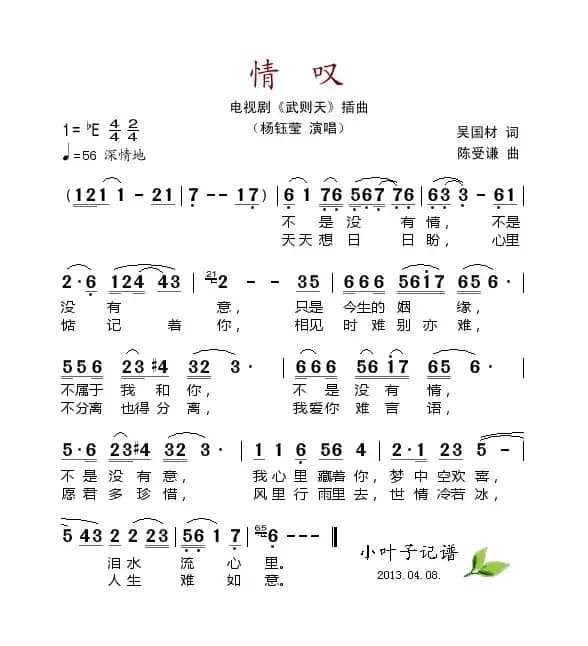 情 叹
电视剧《武则天》插曲
(杨钰莹 演唱)
1=♭E 4/4 2/4
吴国材 词
♩=56 深情地
陈受谦 曲
( 121 1 - 21 | 7 - - 17 ) | 6 1 76 567 76 | 63 3 - 61 |
不 是 没 有 情, 不是
天 天 想 日 日 盼, 心里
2·6 124 43 | 21 2 - - 35 | 666 5617 65 6· |
没 有 意, 只是 今生的 姻 缘,
惦 记 着 你, 相见 时 难 别 亦 难,
556 23 #4 32 3· | 666 5617 65 6· |
不属于 我 和 你, 不 是 没 有 情,
不分离 也得 分 离, 我爱你 难 言 语,
5·6 23#4 32 3· | 1 1 6 56 4 | 2·1 23 5 - |
不 是 没 有 意, 我 心 里 藏着 你, 梦 中 空欢 喜,
愿 君 多 珍 惜, 风 里 行 雨里 去, 世 情 冷若 冰,
5 43 2 2 23 | 56 1 7 | 65 6 - - ‖
泪 水 流 心 里。
人 生 难 如 意。
小叶子记谱
2013.04.08.